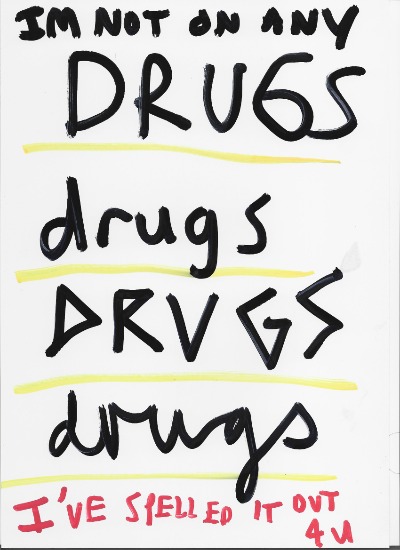 IM NOT ON ANY
DRUGS
drugs
DRUGS
drugs
I'VE SPELLED IT OUT
4 U